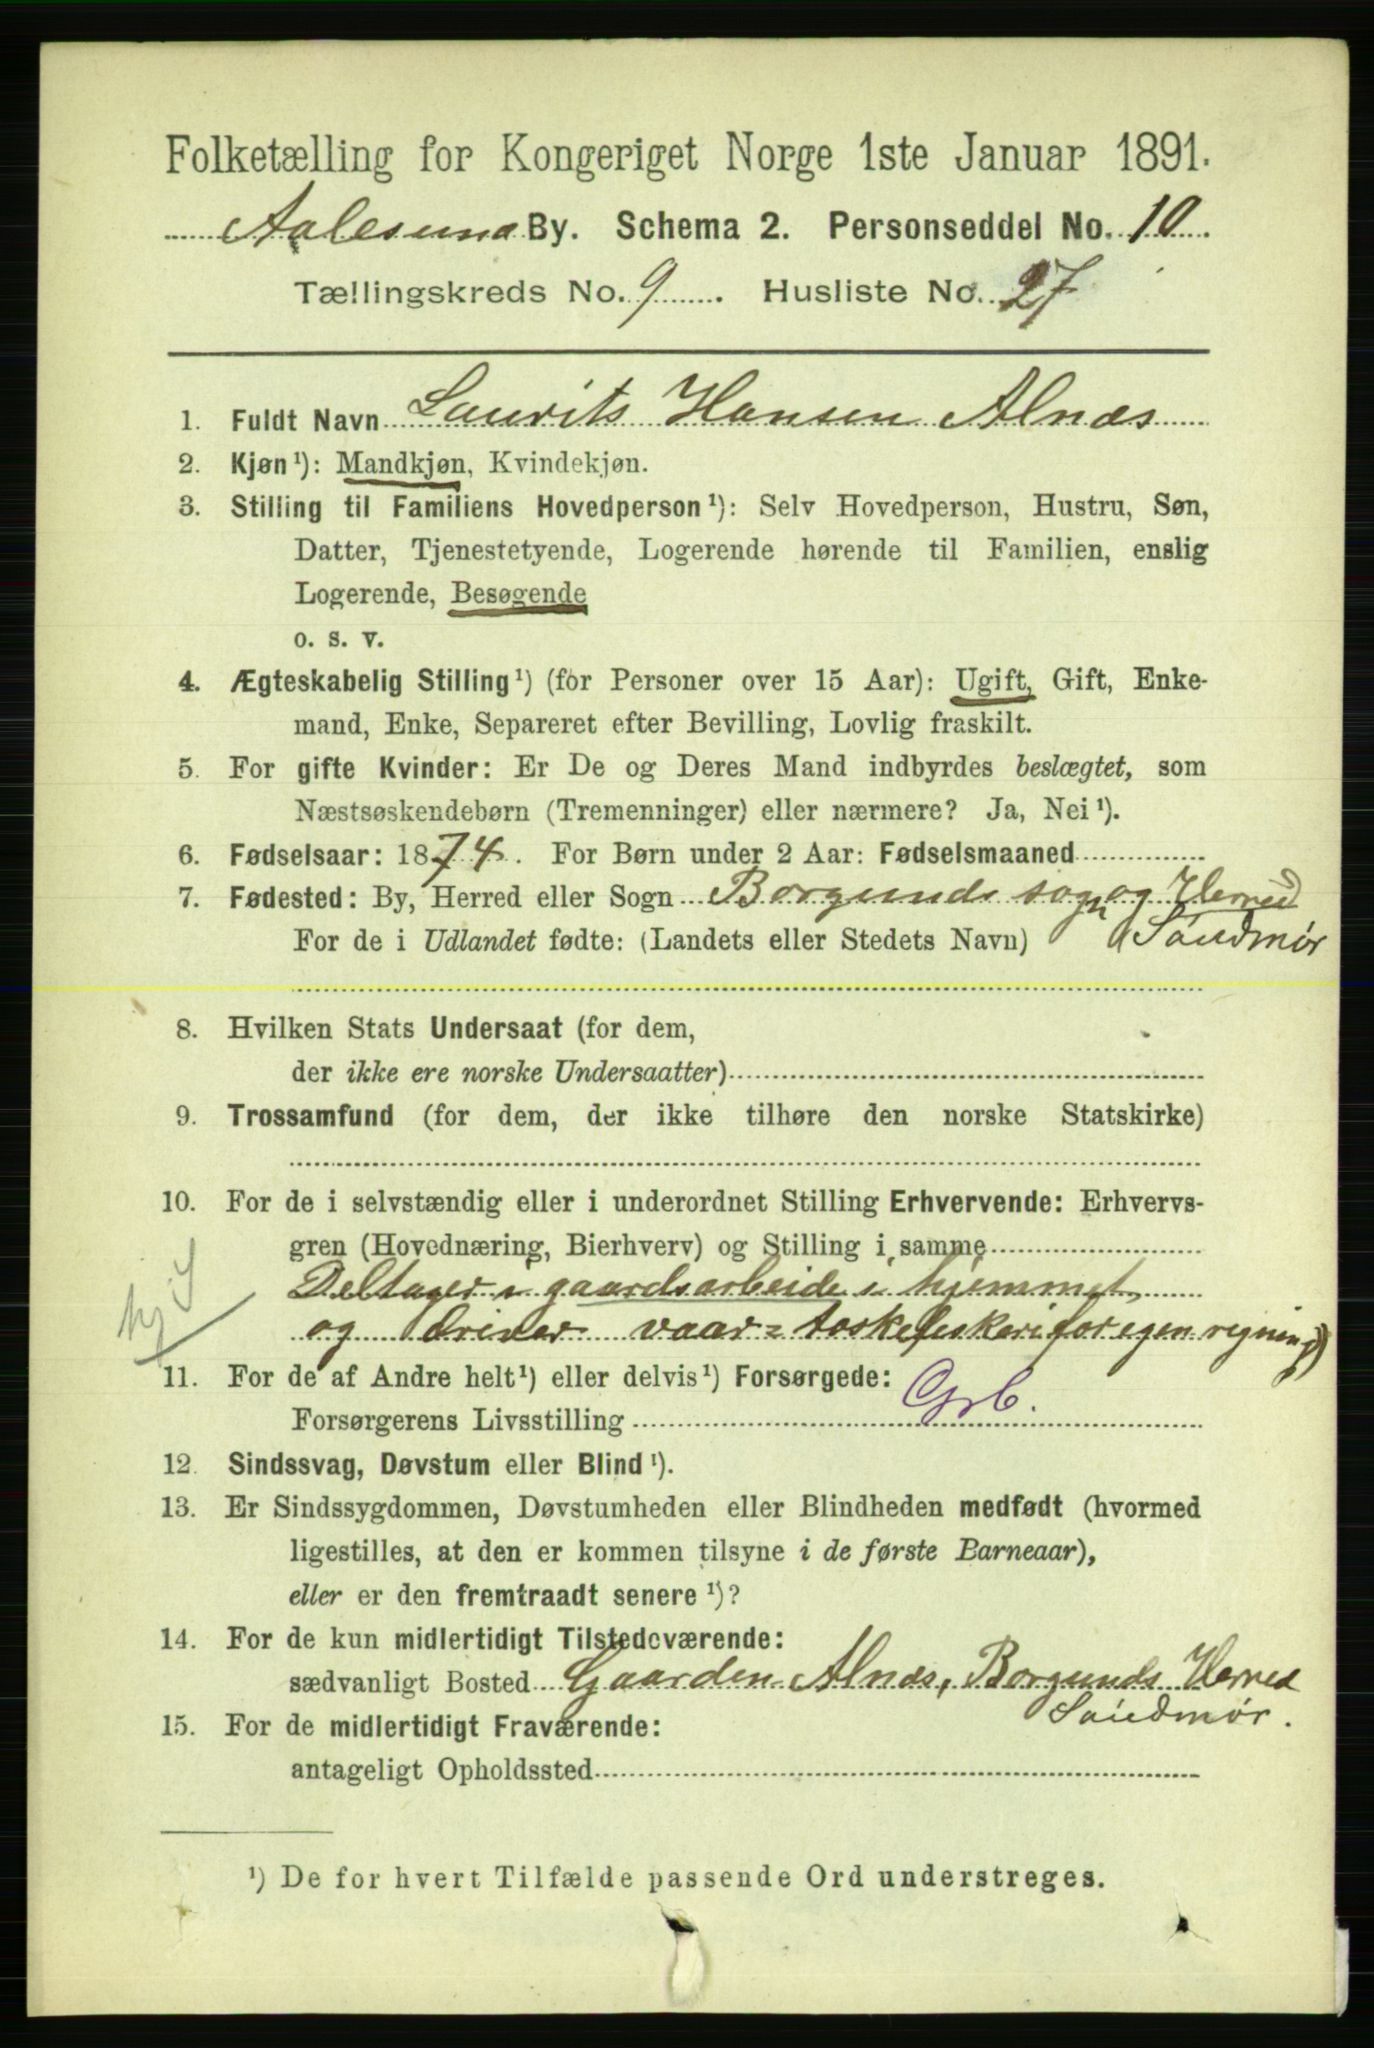 Folketælling for Kongeriget Norge 1ste Januar 1891.
Aalesund By. Schema 2. Personseddel No. 10.
Tællingskreds No. 9. Husliste No. 27
1. Fuldt Navn Laurits Hansen Alnæs
2. Kjøn¹): Mandkjøn, Kvindekjøn.
3. Stilling til Familiens Hovedperson¹): Selv Hovedperson, Hustru, Søn,
Datter, Tjenestetyende, Logerende hørende til Familien, enslig
Logerende, Besøgende
o. s. v.
4. Ægteskabelig Stilling¹) (for Personer over 15 Aar): Ugift, Gift, Enke-
mand, Enke, Separeret efter Bevilling, Lovlig fraskilt.
5. For gifte Kvinder: Er De og Deres Mand indbyrdes beslægtet, som
Næstsøskendebørn (Tremenninger) eller nærmere? Ja, Nei¹).
6. Fødselsaar: 1874. For Børn under 2 Aar: Fødselsmaaned
7. Fødested: By, Herred eller Sogn Borgunds sogn og Herred
For de i Udlandet fødte: (Landets eller Stedets Navn) Söndmør
8. Hvilken Stats Undersaat (for dem,
der ikke ere norske Undersaatter)
9. Trossamfund (for dem, der ikke tilhøre den norske Statskirke)
10. For de i selvstændig eller i underordnet Stilling Erhvervende: Erhvervs-
gren (Hovednæring, Bierhverv) og Stilling i samme
Deltager i gaardsarbeide i hjemmet,
og driver vaar=toskefiskeri for egen regning)
11. For de af Andre helt¹) eller delvis¹) Forsørgede:
Forsørgerens Livsstilling Grb.
12. Sindssvag, Døvstum eller Blind¹).
13. Er Sindssygdommen, Døvstumheden eller Blindheden medfødt (hvormed
ligestilles, at den er kommen tilsyne i de første Barneaar),
eller er den fremtraadt senere¹)?
14. For de kun midlertidigt Tilstedeværende:
sædvanligt Bosted Gaarden Alnæs, Borgunds Herred
Söndmör.
15. For de midlertidigt Fraværende:
antageligt Opholdssted
¹) De for hvert Tilfælde passende Ord understreges.